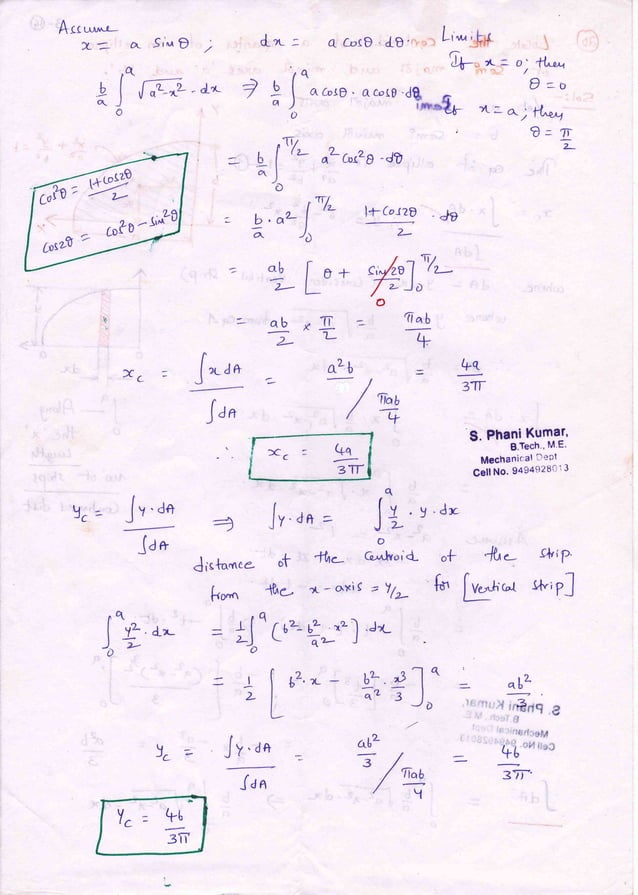 Assume
x = a sinθ ; dx = a cosθ dθ. Limits
If x = 0; then
θ = 0
b/a ∫₀ᵃ √(a²-x²) · dx ⇒ b/a ∫₀ᵃ a cosθ · a cosθ · dθ
If x = a; then
θ = π/2
= b/a ∫₀^(π/2) a² cos²θ · dθ
cos²θ = (1+cos2θ)/2
cos2θ = cos²θ - sin²θ
= b/a · a² ∫₀^(π/2) (1+cos2θ)/2 · dθ
= ab/2 [θ + sin2θ/2]₀^(π/2)
0
= ab/2 × π/2 = πab/4
x_c = ∫x dA / ∫dA = a²b / (πab/4) = 4a/3π
S. Phani Kumar,
B.Tech., M.E.
Mechanical Dept
Cell No. 9494928013
∴ x_c = 4a/3π
y_c = ∫y·dA / ∫dA ⇒ ∫y·dA = ∫₀ᵃ y/2 · y · dx
distance of the centroid of the strip
from the x-axis = y/2 for [vertical strip]
∫₀ᵃ y²/2 · dx = 1/2 ∫₀ᵃ (b² - b²/a² x²) · dx.
= 1/2 [b²·x - b²/a² · x³/3]₀ᵃ = ab²/3
y_c = ∫y·dA / ∫dA = (ab²/3) / (πab/4) = 4b/3π.
y_c = 4b/3π